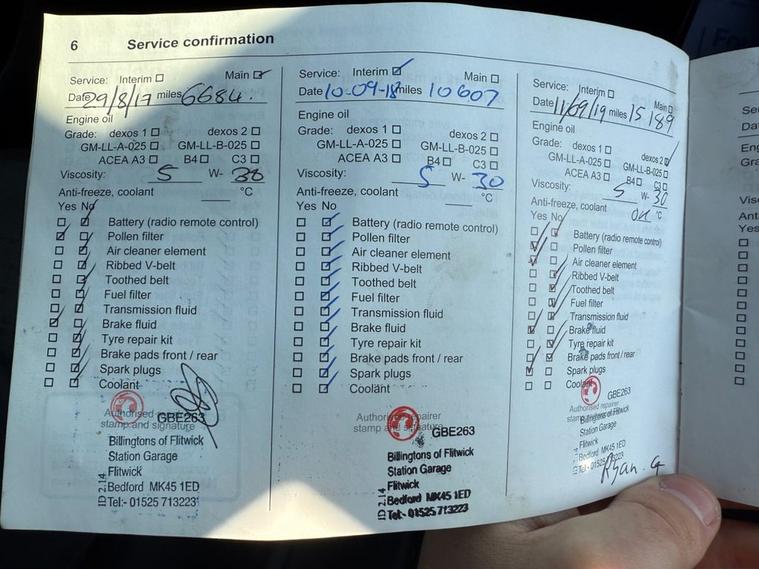 6 Service confirmation
Service: Interim ☐ Main ☑
Date 29/8/17 miles 6684.
Engine oil
Grade: dexos 1 ☐ dexos 2 ☐
GM-LL-A-025 ☐ GM-LL-B-025 ☐
ACEA A3 ☐ B4 ☐ C3 ☐
Viscosity: 5 W- 30
Anti-freeze, coolant °C
Yes No
Battery (radio remote control)
Pollen filter
Air cleaner element
Ribbed V-belt
Toothed belt
Fuel filter
Transmission fluid
Brake fluid
Tyre repair kit
Brake pads front / rear
Spark plugs
Coolant
Authorised
stamp and signature
GBE263
Billingtons of Flitwick
Station Garage
Flitwick
Bedford MK45 1ED
Tel:- 01525 713223
ID 2.14
Service: Interim ☑ Main ☐
Date 10-09-18 miles 10607
Engine oil
Grade: dexos 1 ☐ dexos 2 ☐
GM-LL-A-025 ☐ GM-LL-B-025 ☐
ACEA A3 ☐ B4 ☐ C3 ☐
Viscosity: 5 W- 30
Anti-freeze, coolant °C
Yes No
Battery (radio remote control)
Pollen filter
Air cleaner element
Ribbed V-belt
Toothed belt
Fuel filter
Transmission fluid
Brake fluid
Tyre repair kit
Brake pads front / rear
Spark plugs
Coolant
Authorised repairer
stamp and
GBE263
Billingtons of Flitwick
Station Garage
Flitwick
Bedford MK45 1ED
Tel:- 01525 713223
ID 2.14
Service: Interim ☐ Main ☐
Date 11/09/19 miles 15189
Engine oil
Grade: dexos 1 ☐ dexos 2 ☑
GM-LL-A-025 ☐ GM-LL-B-025 ☐
ACEA A3 ☐ B4 ☐ C3 ☐
Viscosity: 5 W- 30
Anti-freeze, coolant °C
Yes No
Battery (radio remote control)
Pollen filter
Air cleaner element
Ribbed V-belt
Toothed belt
Fuel filter
Transmission fluid
Brake fluid
Tyre repair kit
Brake pads front / rear
Spark plugs
Coolant
Authorised repairer
stamp and signature
GBE263
Billingtons of Flitwick
Station Garage
Flitwick
Bedford MK45 1ED
Tel:- 01525 713223
Ryan. G